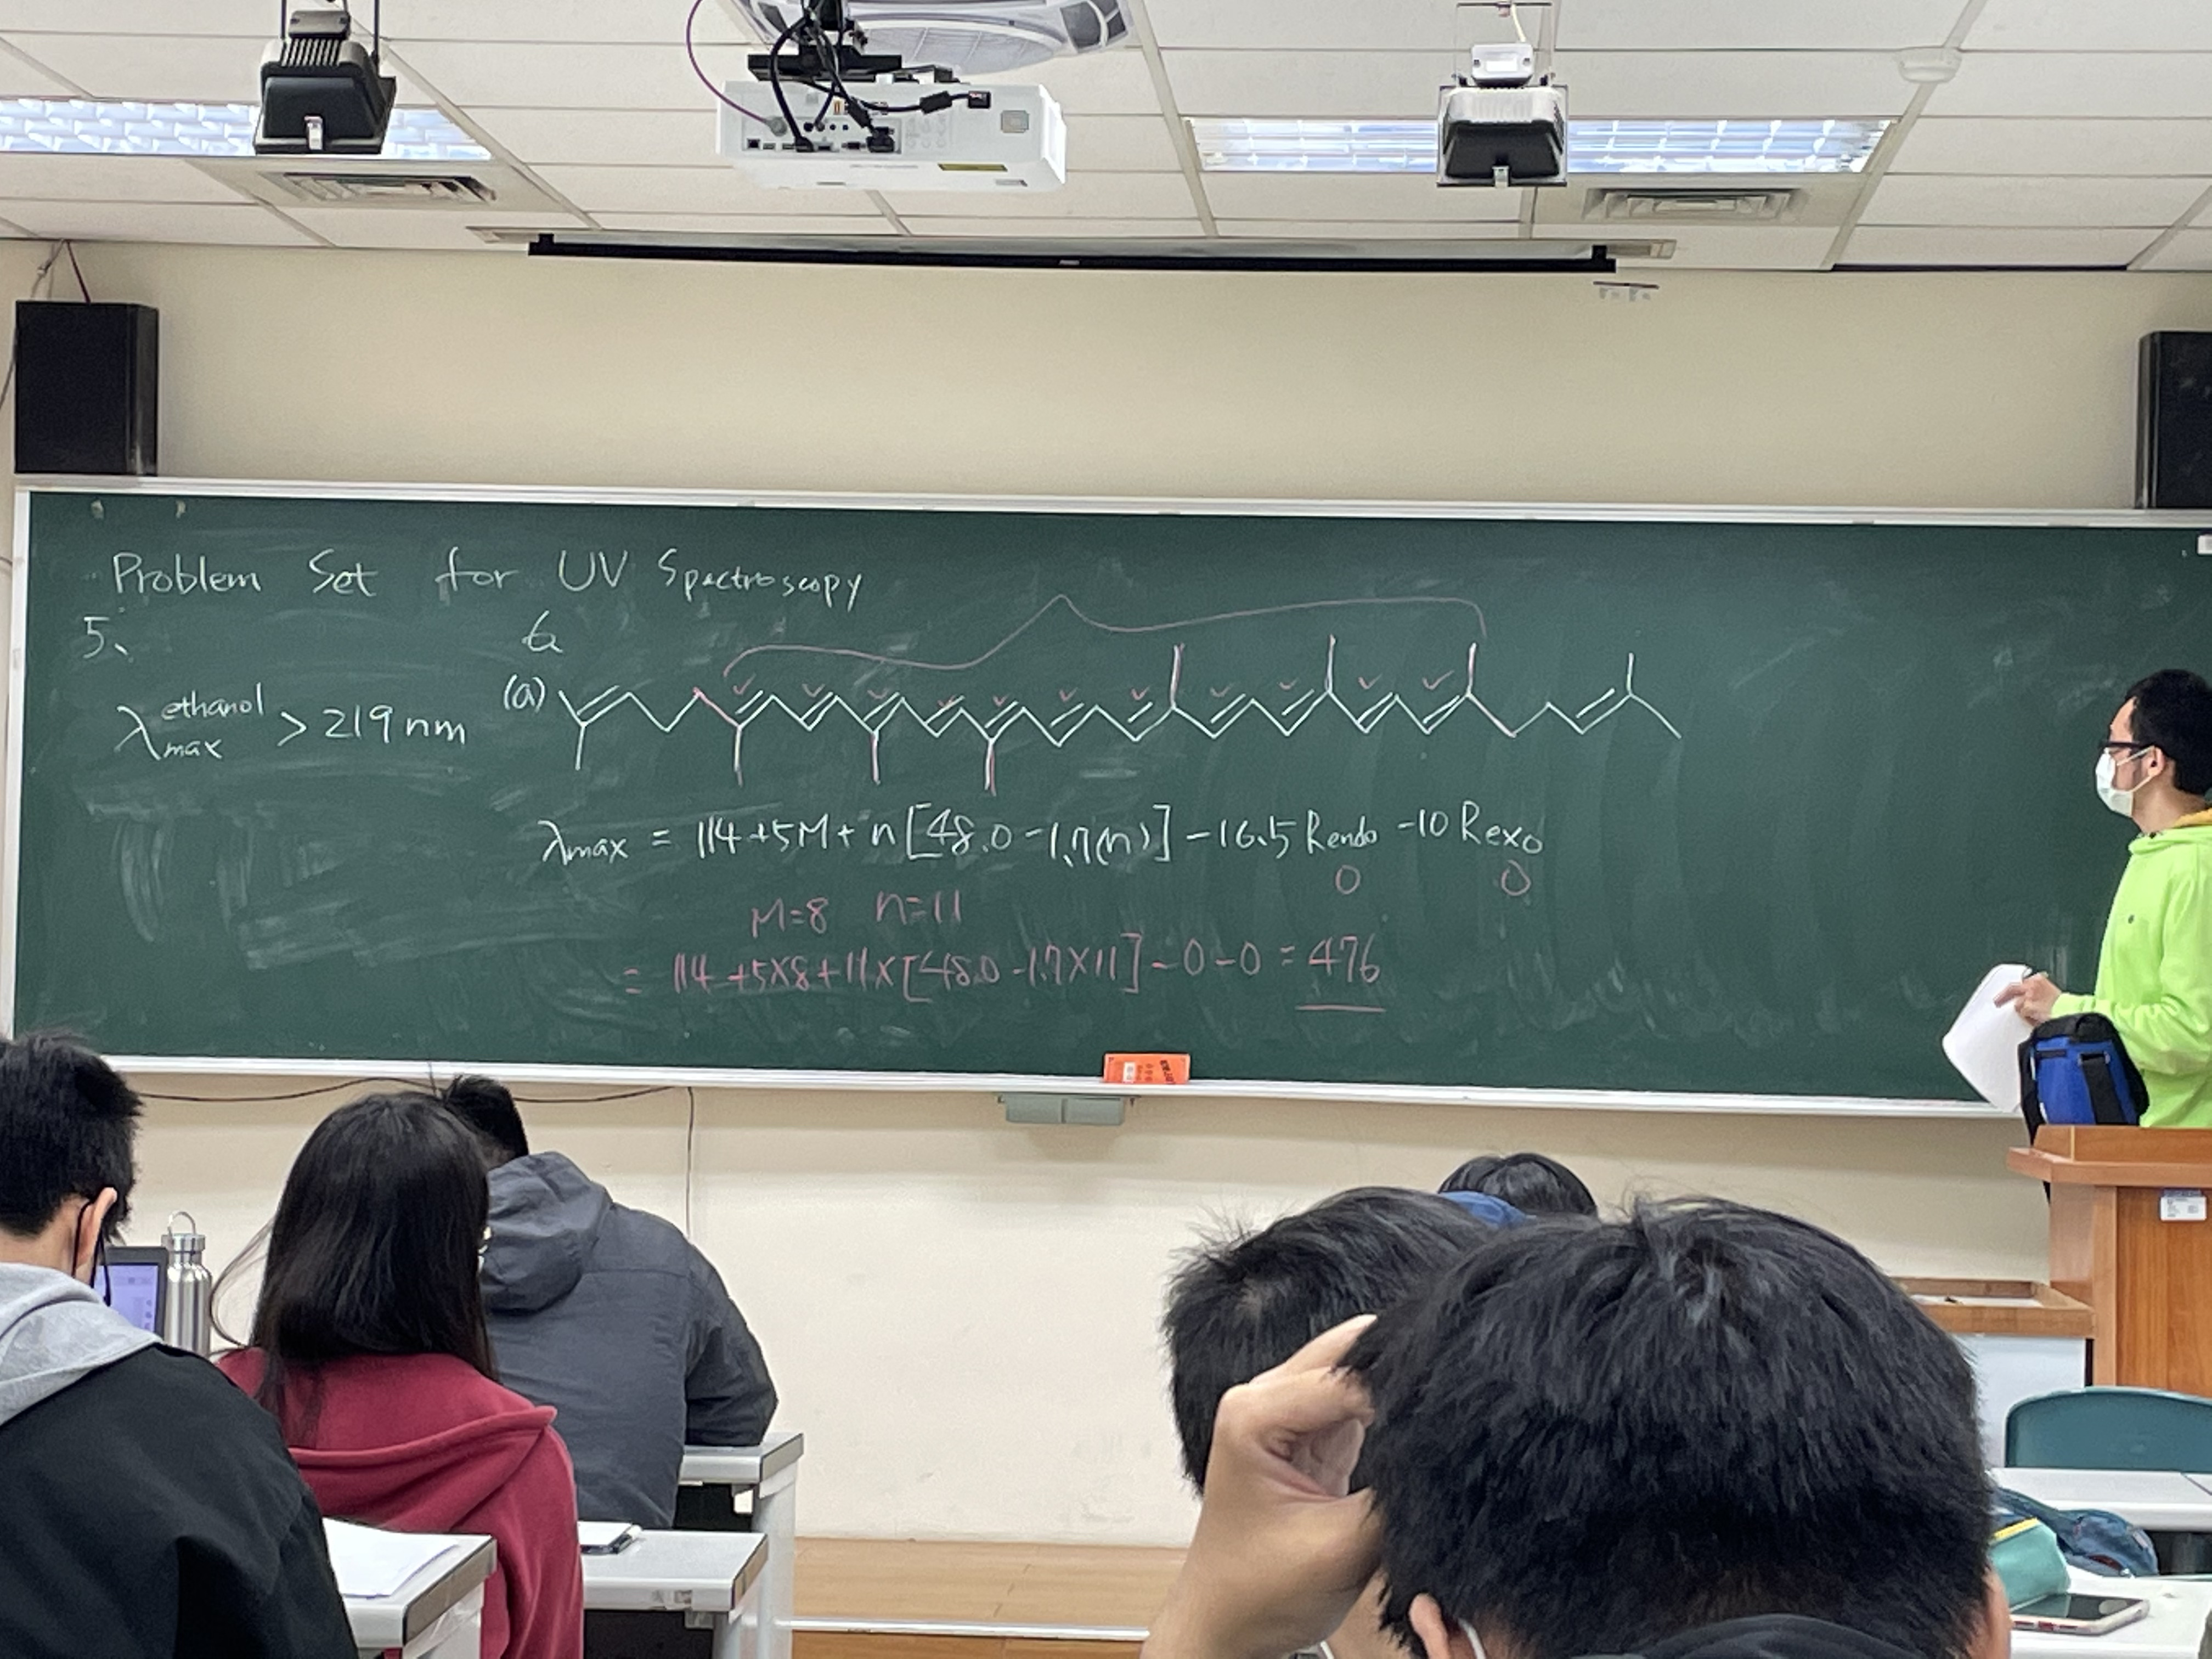 Problem Set for UV Spectroscopy
5、
λmax ethanol > 219 nm
6
(a)
λmax = 114 + 5M + n[48.0 - 1.7(n)] - 16.5 Rendo - 10 Rexo
0 0
M=8 n=11
= 114 + 5×8 + 11×[48.0 - 1.7×11] - 0 - 0 = 476